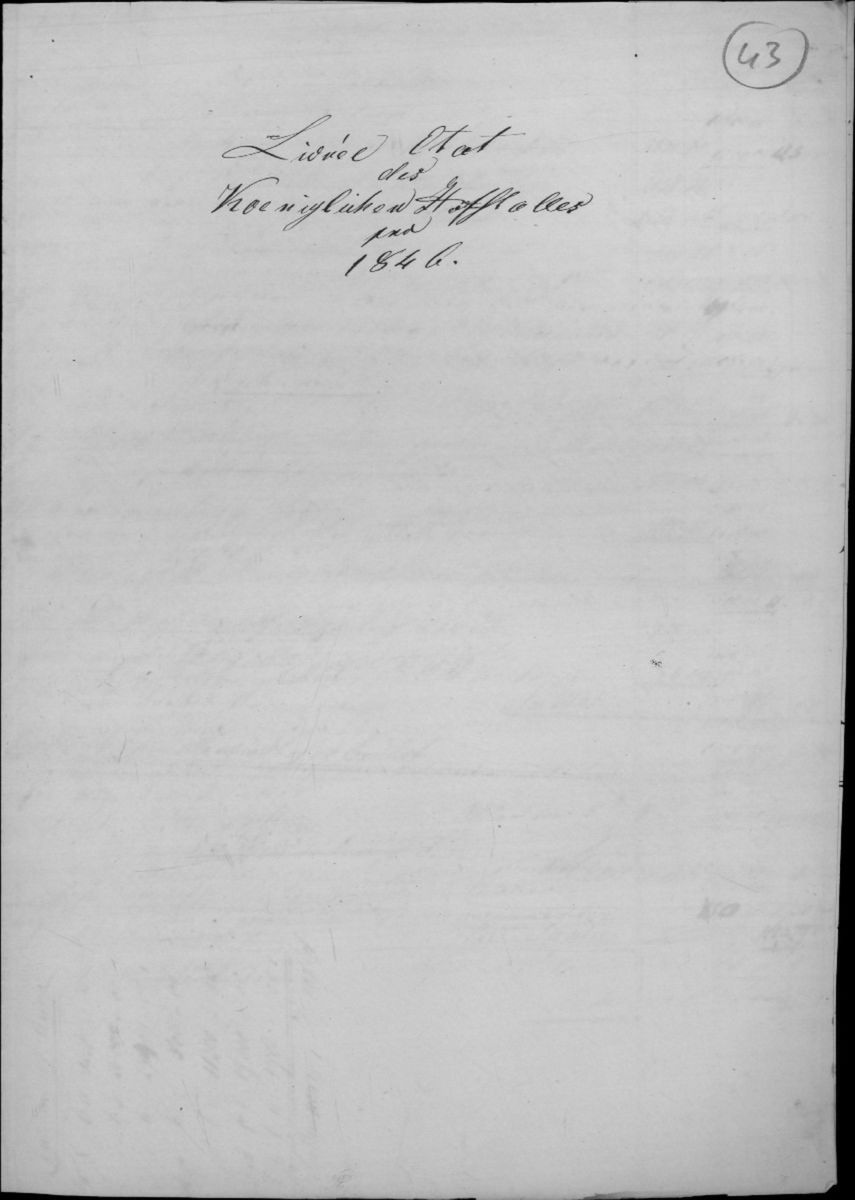 43
Livrée Etat
des
Koeniglichen Hofstalles
pro
1846.